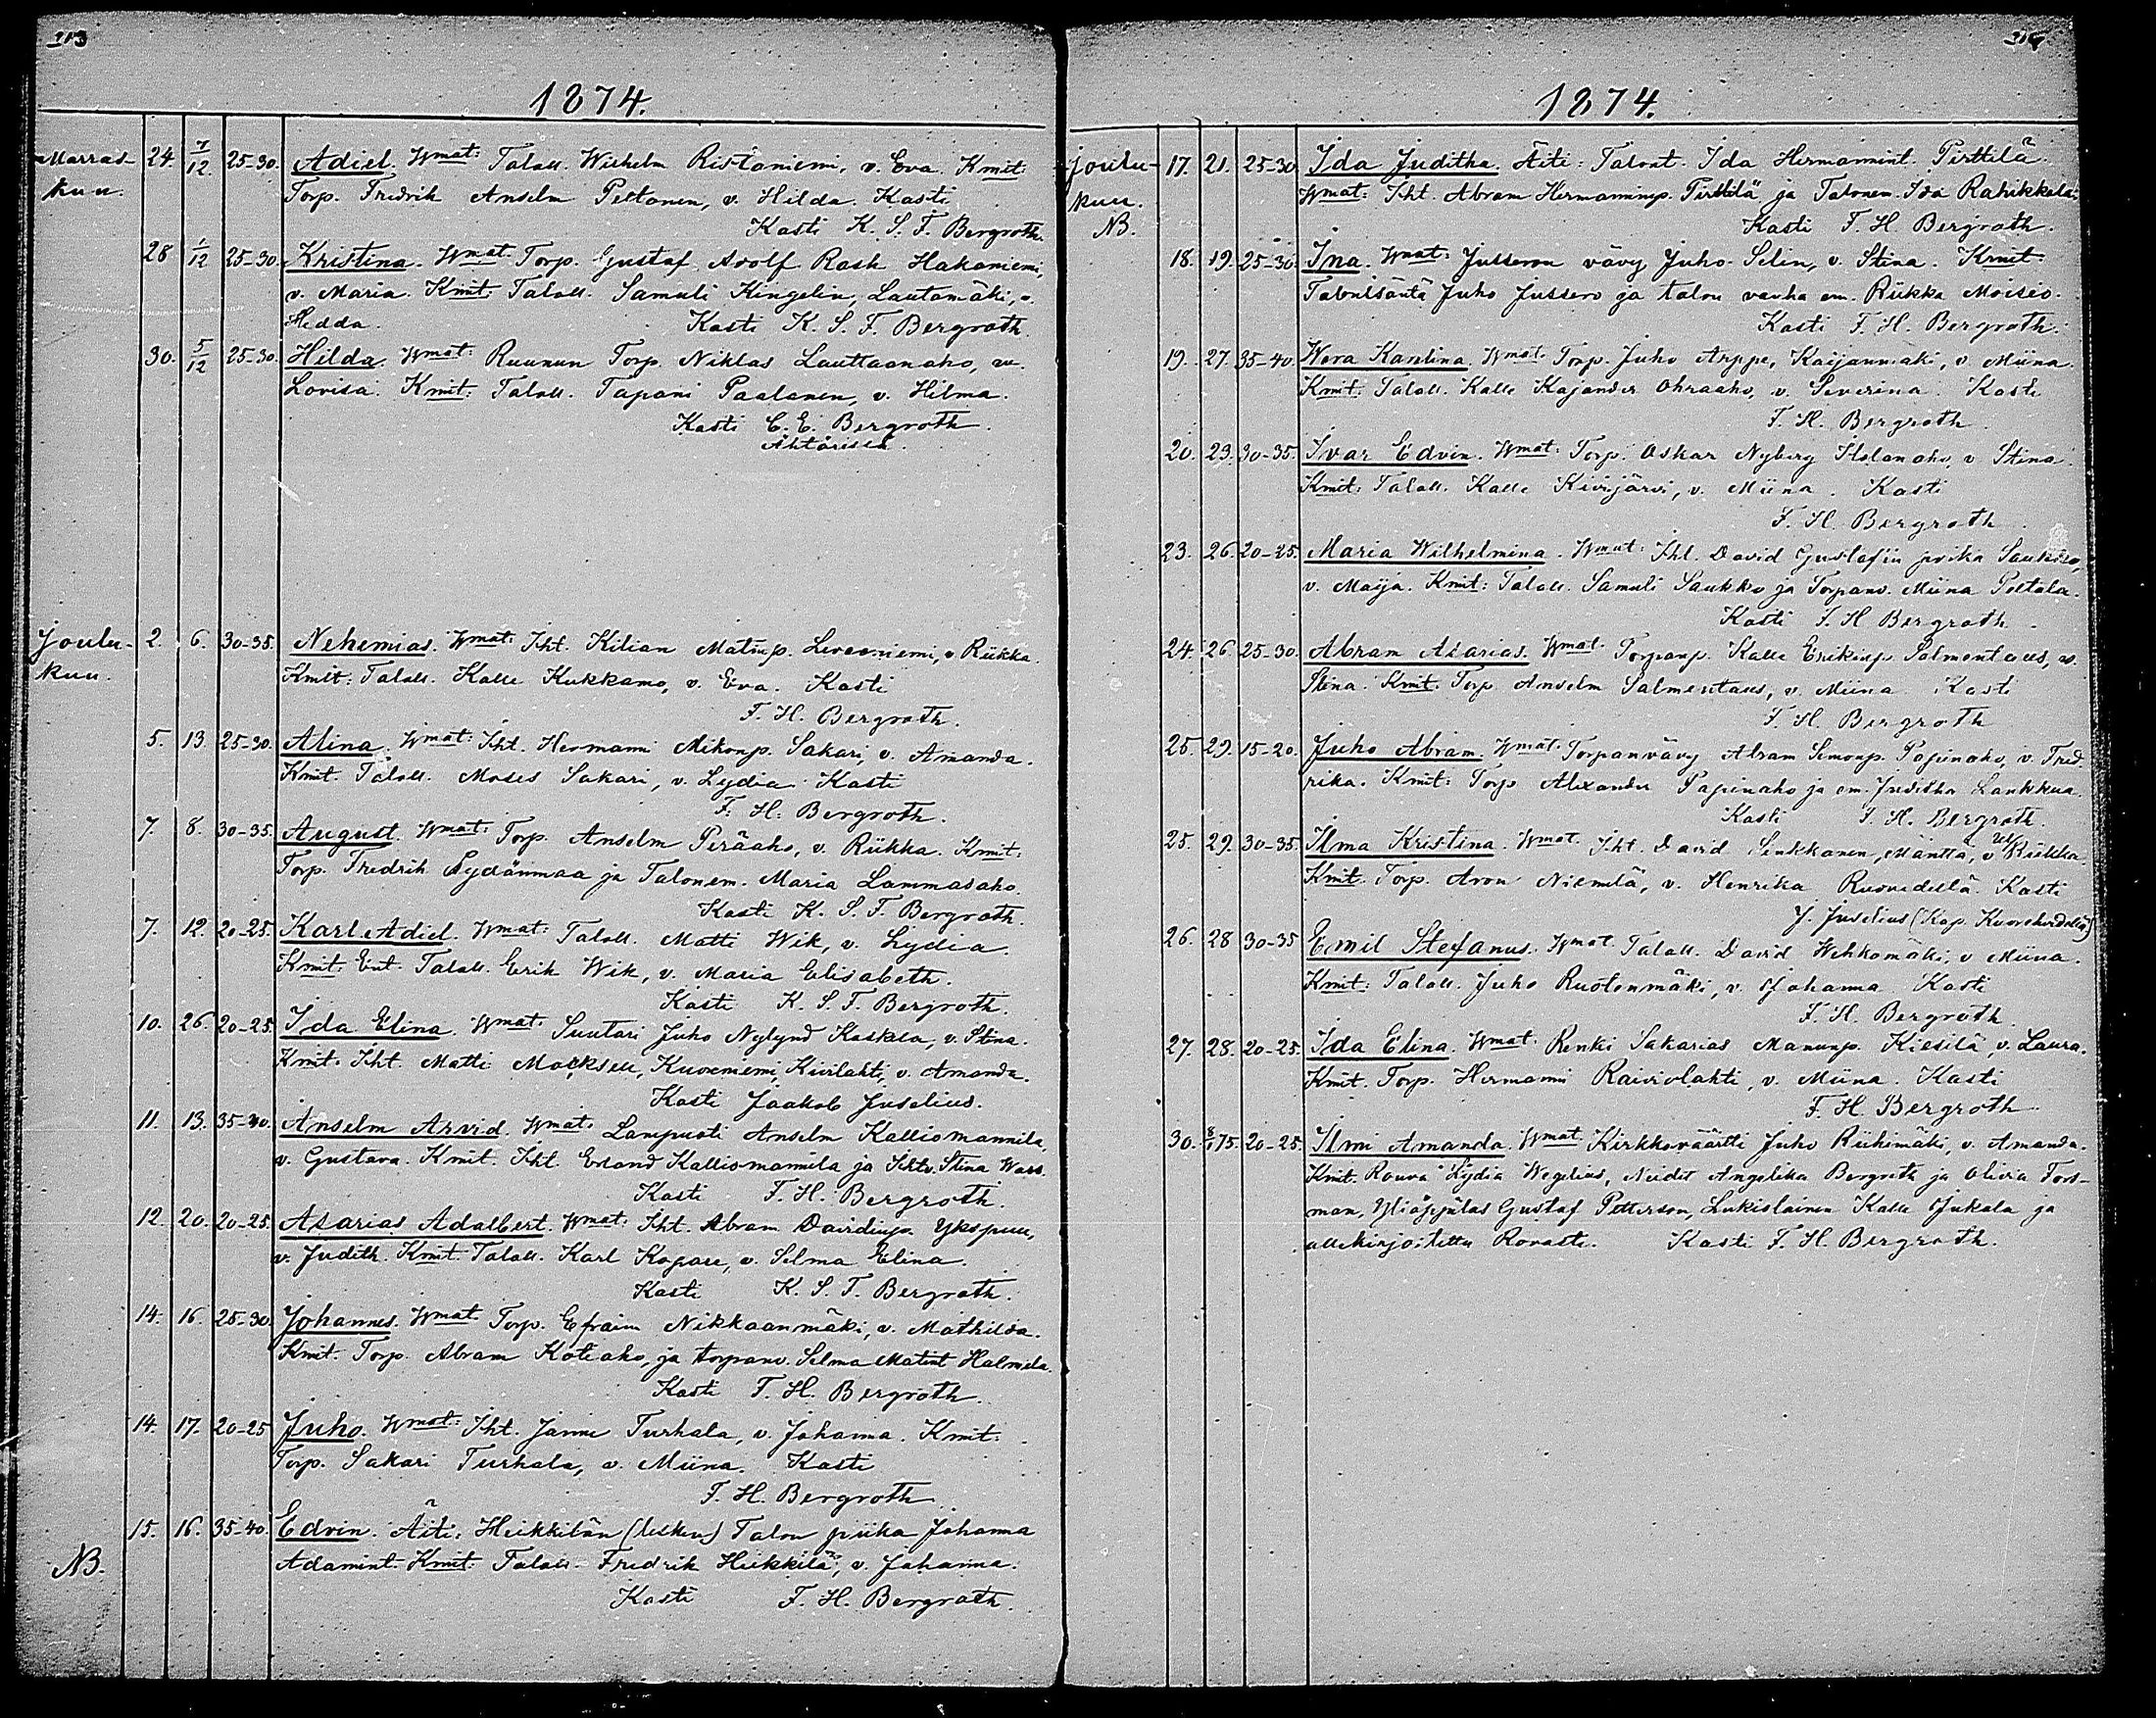 213
1874.
Marras-
kuu.
24. 7/12. 25-30. Adiel. Wmat: Talall. Wilhelm Ristaniemi, v. Eva. Kmit:
Torp. Fredrik Anselm Peltonen, v. Hilda. Kasti
Kasti K. S. F. Bergroth.
28 1/12 25-30. Kristina. Wmat. Torp. Gustaf Adolf Rask Hakoniemi,
v. Maria. Kmit: Talall. Samuli Kingelin, Lautamäki, v.
Hedda. Kasti K. S. F. Bergroth
30. 5/12 25-30. Hilda. Wmat: Ruunun Torp. Niklas Lauttaanaho, v.
Lovisa. Kmit: Talall. Tapani Paalanen, v. Hilma.
Kasti C. E. Bergroth.
Ähtärissä.
Joulu-
kuu.
2. 6. 30-35. Nehemias. Wmat: Iht. Kilian Matinp. Leveeniemi, v. Riikka.
Kmit: Talall. Kalle Kukkamo, v. Eva. Kasti
F. H. Bergroth.
5. 13. 25-30. Alina. Wmat: Iht. Hermanni Mikonp. Sakari, v. Amanda.
Kmit. Talall. Moses Sakari, v. Lydia. Kasti
F. H. Bergroth.
7. 8. 30-35. August. Wmat: Torp. Anselm Peräaho, v. Riikka. Kmit:
Torp. Fredrik Sydänmaa ja Talonem. Maria Lammasaho.
Kasti K. S. F. Bergroth.
7. 12. 20-25. Karl Adiel. Wmat: Talall. Matti Wik, v. Lydia.
Kmit: Ent. Talall. Erik Wik, v. Maria Elisabeth.
Kasti K. S. F. Bergroth.
10. 26. 20-25. Ida Elina. Wmat: Suutari Juho Nylynd Kaskela, v. Stina.
Kmit: Iht. Matti Kuoreniemi, Kivilahti, v. Amanda.
Kasti Jaakob Juselius.
11. 13. 35-40. Anselm Arvid. Wmat: Lampuoti Anselm Kalliomannila,
v. Gustava. Kmit. Iht. Erland Kalliomannila ja Ihtv. Stina
Kasti F. H. Bergroth.
12. 20. 20-25. Asarias Adalbert. Wmat: Iht. Abram Davidinp. Ykspuu,
v. Judith. Kmit: Talall. Karl Kopare, v. Selma Elina.
Kasti K. S. F. Bergroth.
14. 16. 25-30. Johannes. Wmat. Torp. Efraim Nikkaanmäki, v. Mathilda.
Kmit: Torp. Abram Kotiaho, ja torpanv. Selma Matint Halmela.
Kasti F. H. Bergroth.
14. 17. 20-25 Juho. Wmat: Iht. Janne Turhala, v. Johanna. Kmit:
Torp. Sakari Turhala, v. Miina. Kasti
F. H. Bergroth
NB.
15. 16. 35-40. Edvin. Äiti: Heikkilän (lesken) Talon piika Johanna
Adamint. Kmit: Talall. Fredrik Heikkilä, v. Johanna.
Kasti F. H. Bergroth.
1874.
Joulu-
kuu.
NB.
17. 21. 25-30 Ida Juditha. Äiti: Talont. Ida Hermannint. Pirttilä.
Wmat: Iht. Abram Hermanninp. Pirttilä ja Talonem. Ida Rahikkala.
Kasti F. H. Bergroth.
18. 19. 25-30. Ina. Wmat: Jusseron vävy Juho Selin, v. Stina. Kmit:
Talonisäntä Juho Jussero ja talon vanha em. Riikka Moisio.
Kasti F. H. Bergroth.
19. 27. 35-40. Wera Karolina. Wmat: Torp. Juho Arppe, Kaijanmäki, v. Miina.
Kmit. Talall. Kalle Kajander Ohraaho, v. Severina. Kasti
F. H. Bergroth.
20. 23. 30-35. Ivar Edvin. Wmat: Torp. Oskar Nyberg Holanaho, v. Stina.
Kmit: Talall. Kalle Kivijärvi, v. Miina. Kasti
F. H. Bergroth.
23. 26. 20-25. Maria Wilhelmina. Wmat: Iht. David Gustafin poika Saukko,
v. Maija. Kmit: Talall. Samuli Saukko ja Torpanv. Miina Peltola.
Kasti F. H Bergroth.
24. 26 25-30. Abram Asarias. Wmat. Torpanp. Kalle Erikinp. Salmentaus, v.
Stina. Kmit. Torp. Anselm Salmentaus, v. Miina Kasti
F. H. Bergroth
25. 29. 15-20. Juho Abram. Wmat. Torpanvävy Abram Simonp. Papinaho, v. Fred-
rika. Kmit: Torp Alexander Papinaho ja em. Juditha Laukkua.
Kasti F. H. Bergroth.
25. 29. 30-35. Ilma Kristina. Wmat. Iht. David Sinkkonen, Mänttä, v. Ulrikka.
Kmit. Torp. Aron Niemelä, v. Henrika Ruovedellä. Kasti
J. Juselius (Kap. Kuorehvedellä)
26. 28 30-35 Emil Stefanus. Wmat. Talall. David Wehkomäki, v. Miina.
Kmit: Talall. Juho Ruotonmäki, v. Johanna. Kasti
F. H. Bergroth.
27. 28. 20-25. Ida Elina. Wmat. Renki Sakarias Manunp. Kiesilä, v. Laura.
Kmit. Torp. Hermanni Raiviolahti, v. Miina. Kasti
F. H. Bergroth
30. 8/1 75. 20-25. Ilmi Amanda. Wmat. Kirkkoväärtti Juho Riihimäki, v. Amanda.
Kmit. Rouva Lydia Wegelius, Neidit Angelika Bergroth ja Olivia Fors-
man, Ylioppilas Gustaf Petterson, Lukiolainen Kalle Jukala ja
allekirjoitettu Rovasti. Kasti F. H. Bergroth.